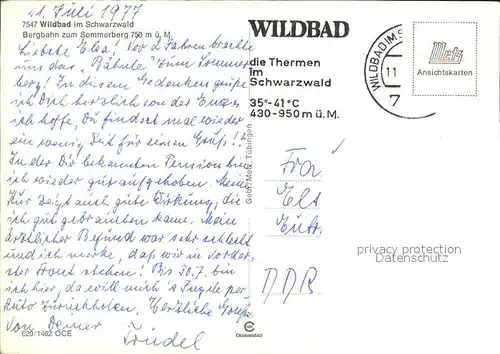 11. Juli 1977
7547 Wildbad im Schwarzwald
Bergbahn zum Sommerberg 750 m ü. M.
Liebste Elsa! Vor 2 Jahren brachte
uns das "Bähnle" zum Sommer
berg! In diesem Gedanken grüße
ich Dich herzlich von der Enz
ich hoffe, Du findest mal wieder
ein wenig Zeit für einen Gruß!!
In der Dir bekannten Pension bin
ich wieder gut aufgehoben. Mein
Kur zeigt auch gute Wirkung, die
ich gut gebrauchen kann. Mein
ärztlicher Befund war sehr schlecht
und ich merke, daß wir in vorder-
ster Front stehen! Bis 30.7. bin
ich hier, da will mich per
Auto zurückholen. Herzliche Grüße
von Deiner
Trudel
620/1462 OCE
Gebr. Metz, Tübingen
WILDBAD
die Thermen
im
Schwarzwald
35°-41°C
430-950 m ü. M.
WILDBAD IM S
11
7
Metz
Ansichtskarten
Frau
DDR
copyright protection
Datenschutz